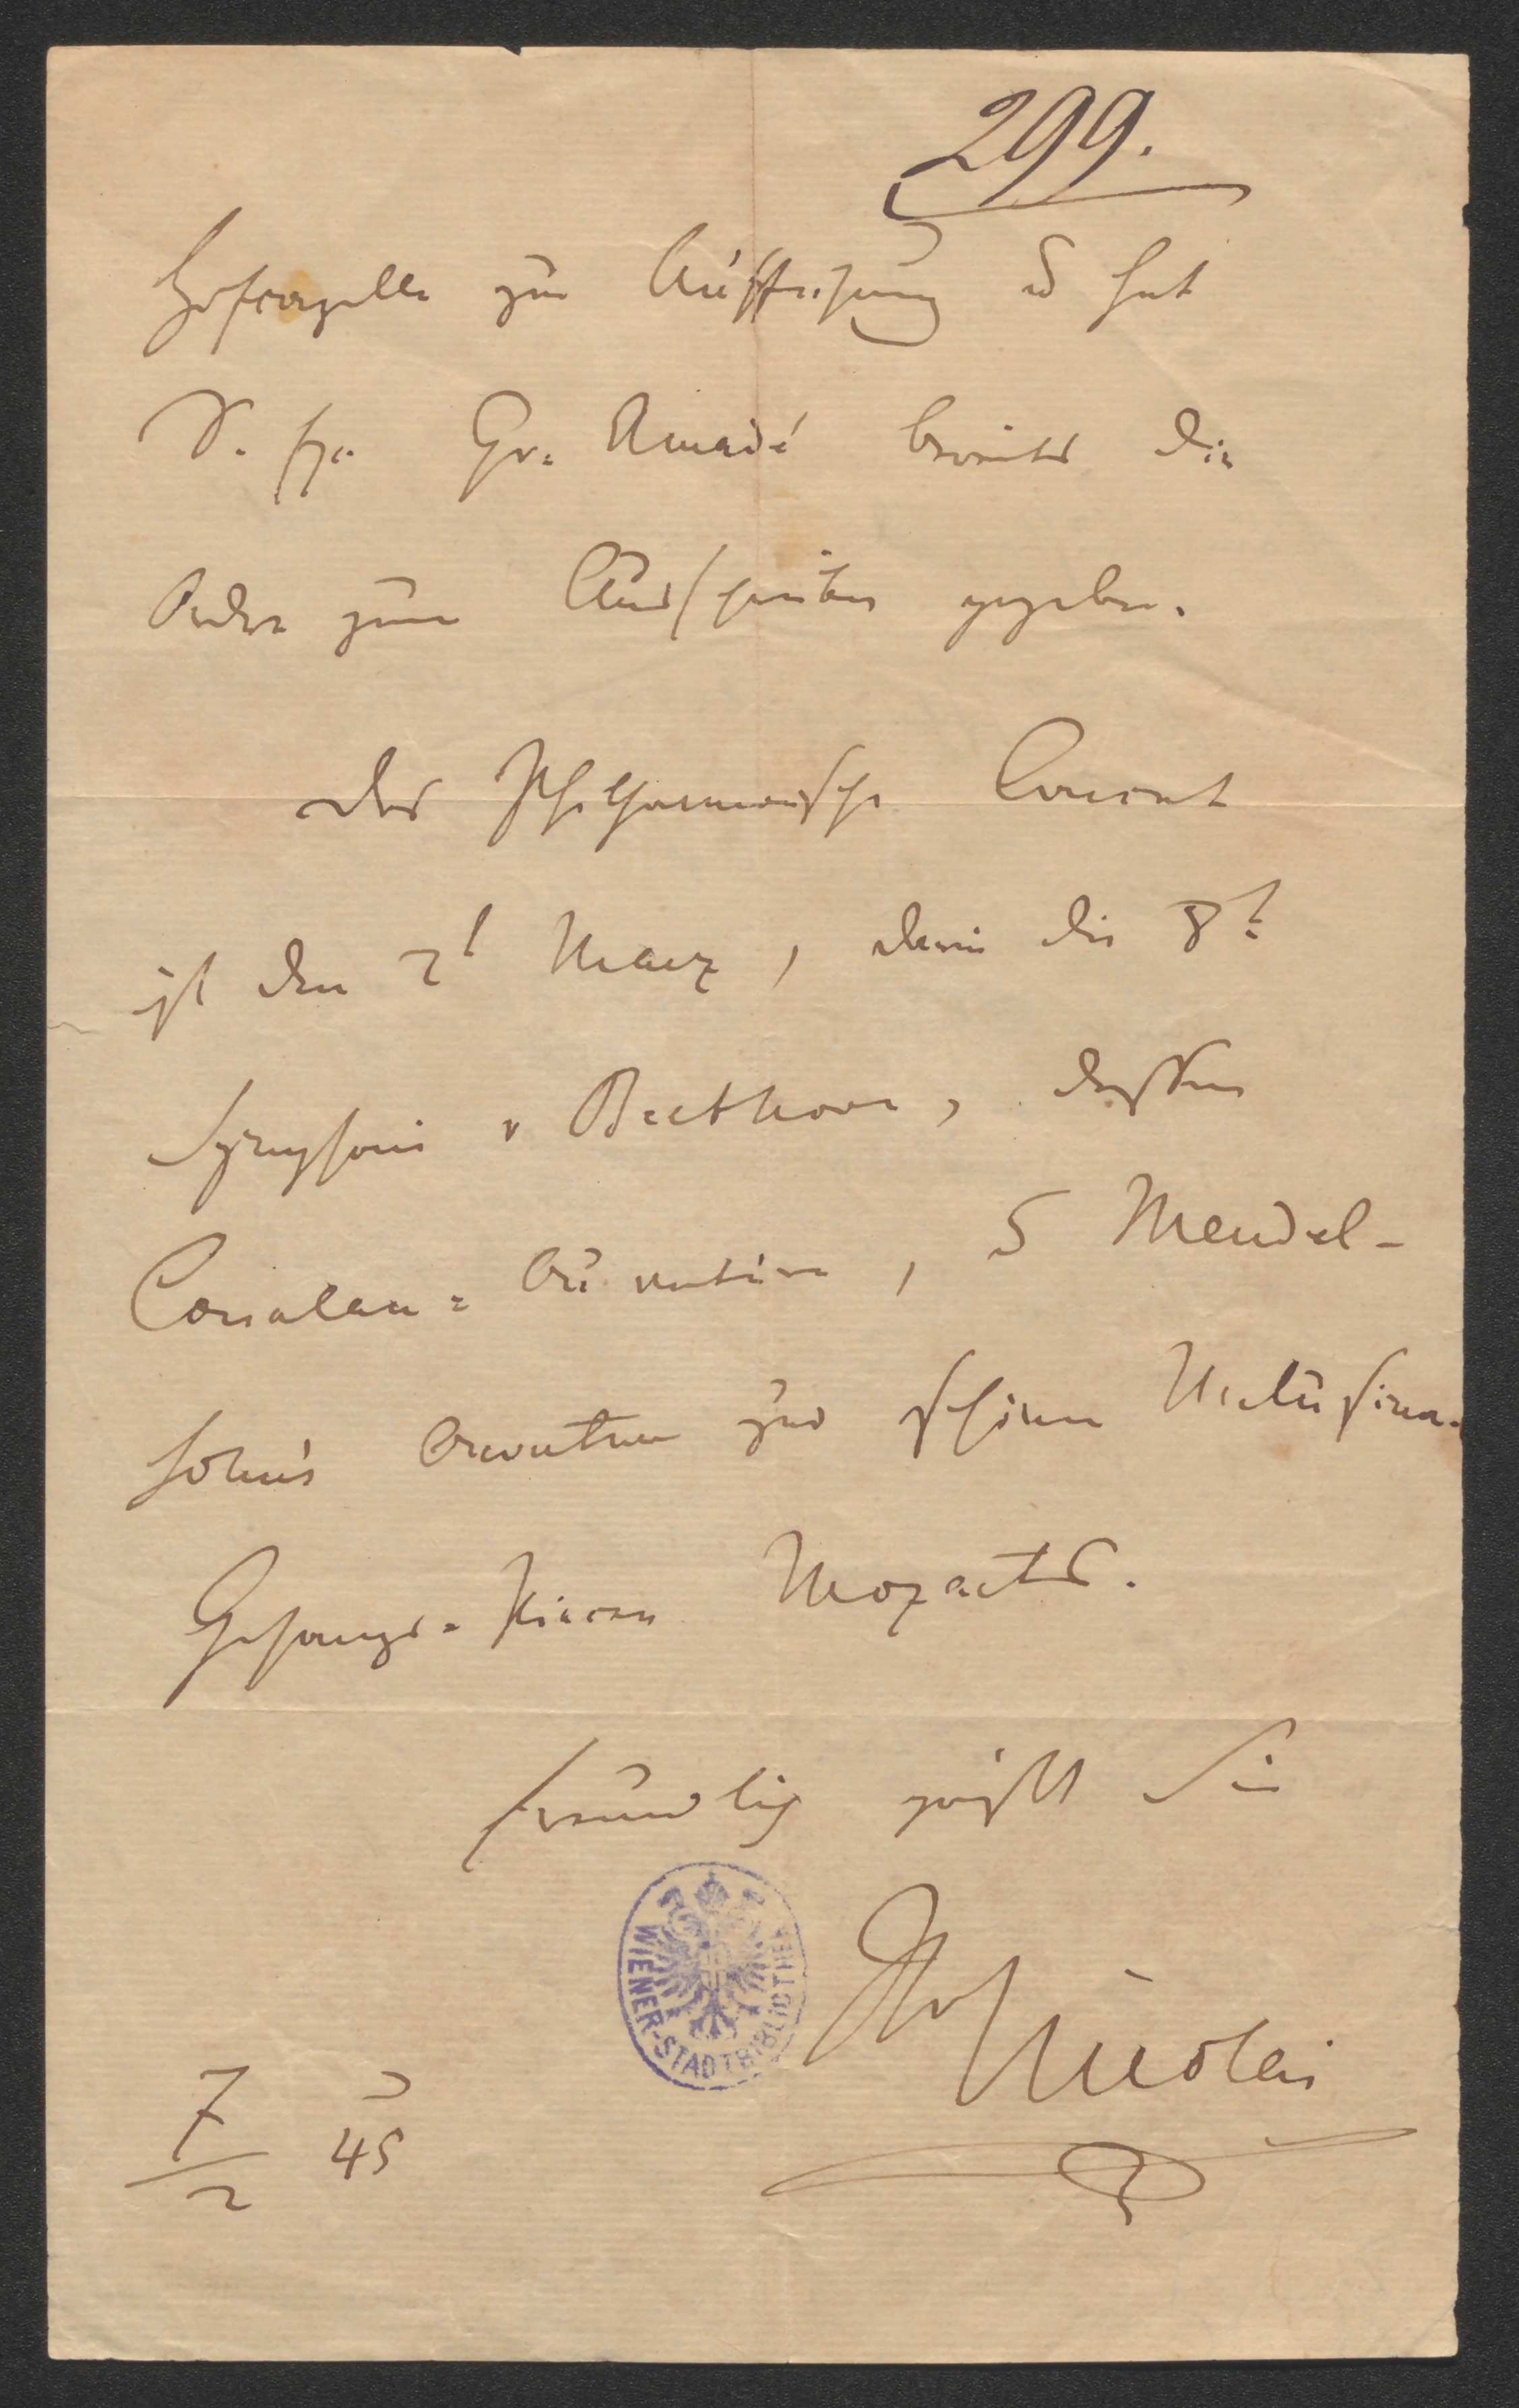 299.
Hofcapelle zur Aufführung u hat
S. Ex. Gr. Amadé bereits die
Ordre zum Ausschreiben gegeben.
Das Philharmonische Concert
ist den 2t März, darin die 8t
Symphonie v Beethoven, dessen
Coriolan= Ouvertüre, u Mendel-
sohn's Ouverture zur schönen Melusina.
Gesangs= Piecen Mozarts.
Freundlich grüßt Sie
Nicolai
WIENER-STADTBIBLIOTHEK
7/2 45